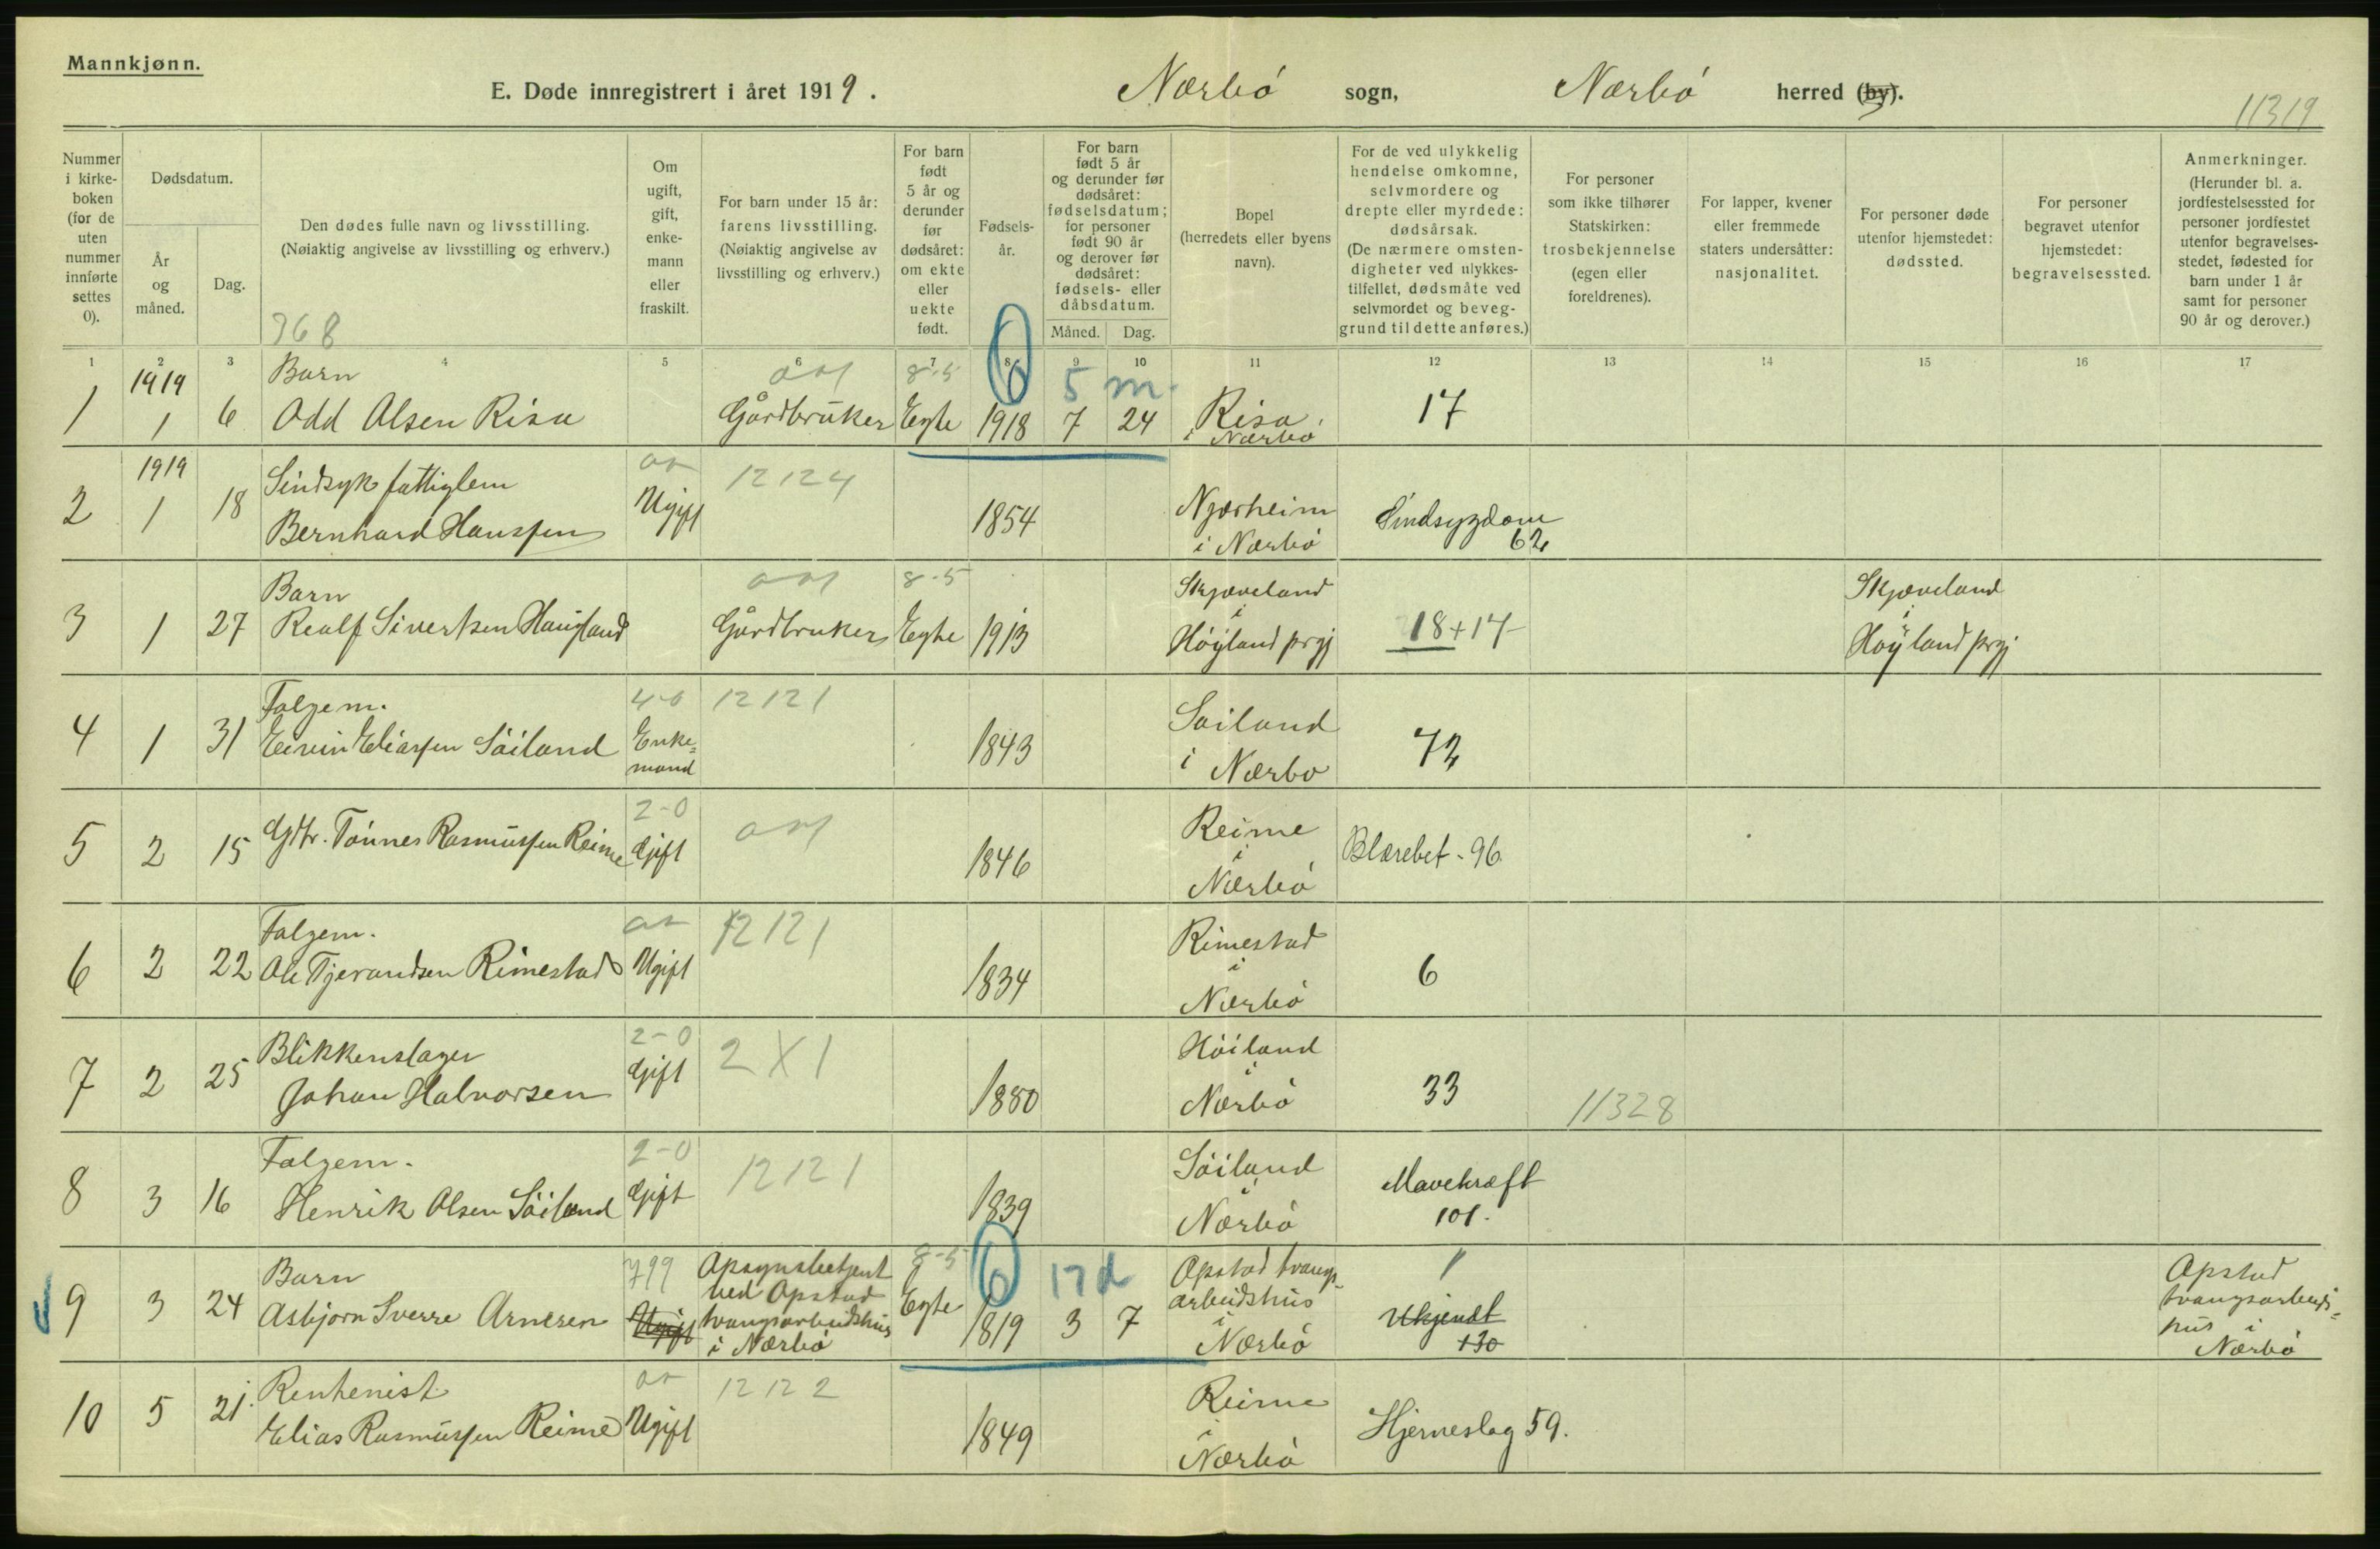 Mannkjønn.
E. Døde innregistrert i året 1919. Nærbø sogn, Nærbø herred (by).
11319
Nummer i kirke-boken (for de uten nummer innførte settes 0).
Dødsdatum.
År og måned.
Dag.
Den dødes fulle navn og livsstilling.
(Nøiaktig angivelse av livsstilling og erhverv.)
368
Om ugift, gift, enke-mann eller fraskilt.
For barn under 15 år: farens livsstilling. (Nøiaktig angivelse av livsstilling og erhverv.)
For barn født 5 år og derunder før dødsåret: om ekte eller uekte født.
Fødsels-år.
For barn født 5 år og derunder før dødsåret: fødselsdatum; for personer født 90 år og derover før dødsåret: fødsels- eller dåbsdatum.
Måned. Dag.
Bopel (herredets eller byens navn).
For de ved ulykkelig hendelse omkomne, selvmordere og drepte eller myrdede: dødsårsak. (De nærmere omsten-digheter ved ulykkes-tilfellet, dødsmåte ved selvmordet og beveg-grund til dette anføres.)
For personer som ikke tilhører Statskirken: trosbekjennelse (egen eller foreldrenes).
For lapper, kvener eller fremmede staters undersåtter: nasjonalitet.
For personer døde utenfor hjemstedet: dødssted.
For personer begravet utenfor hjemstedet: begravelsessted.
Anmerkninger. (Herunder bl. a. jordfestelsessted for personer jordfestet utenfor begravelses-stedet, fødested for barn under 1 år samt for personer 90 år og derover.)
1 2 3 4 5 6 7 8 9 10 11 12 13 14 15 16 17
1919 Barn 8-5 6 5 m.
1 1 6 Odd Olsen Risa Gårdbruker Egte 1918 7 24 Risa i Nærbø 17
1919 Sindsyk fattiglem 12124
2 1 18 Bernhard Hanssen Ugift 1854 Njærheim i Nærbø Sindsygdom 62
Barn 8-5
3 1 27 Realf Sivertsen Haugland Gårdbruker Egte 1913 Skjæveland i Høyland prgj 18+17 Skjæveland i Høyland prgj
Folgem. 4-0 12121
4 1 31 Eivin Eliassen Søiland Enke=mand 1843 Søiland i Nærbø 72
2-0
5 2 15 Gdbr. Tønnes Rasmussen Reime Gift 1846 Reime i Nærbø Blærebet - 96
Folgem. 12121
6 2 22 Ole Tjerandsen Rimestad Ugift 1834 Rimestad i Nærbø 6
Blikkenslager 2-0 2X1
7 2 25 Johan Halvorsen Gift 1880 Høiland i Nærbø 33 11328
Folgem. 2-0 12121
8 3 16 Henrik Olsen Søiland Gift 1839 Søiland i Nærbø Mavekræft 101.
Barn 799 8-5 6 17 d
9 3 24 Asbjørn Sverre Arnesen Ugift Opsynsbetjent ved Opstad tvangsarbeidshus i Nærbø Egte 1819 3 7 Opstad tvangs-arbeidshus i Nærbø Ukjendt 130 Opstad tvangsarbeids=hus i Nærbø
Rentenist 12122
10 5 21 Elias Rasmussen Reime Ugift 1849 Reime i Nærbø Hjerneslag 59.